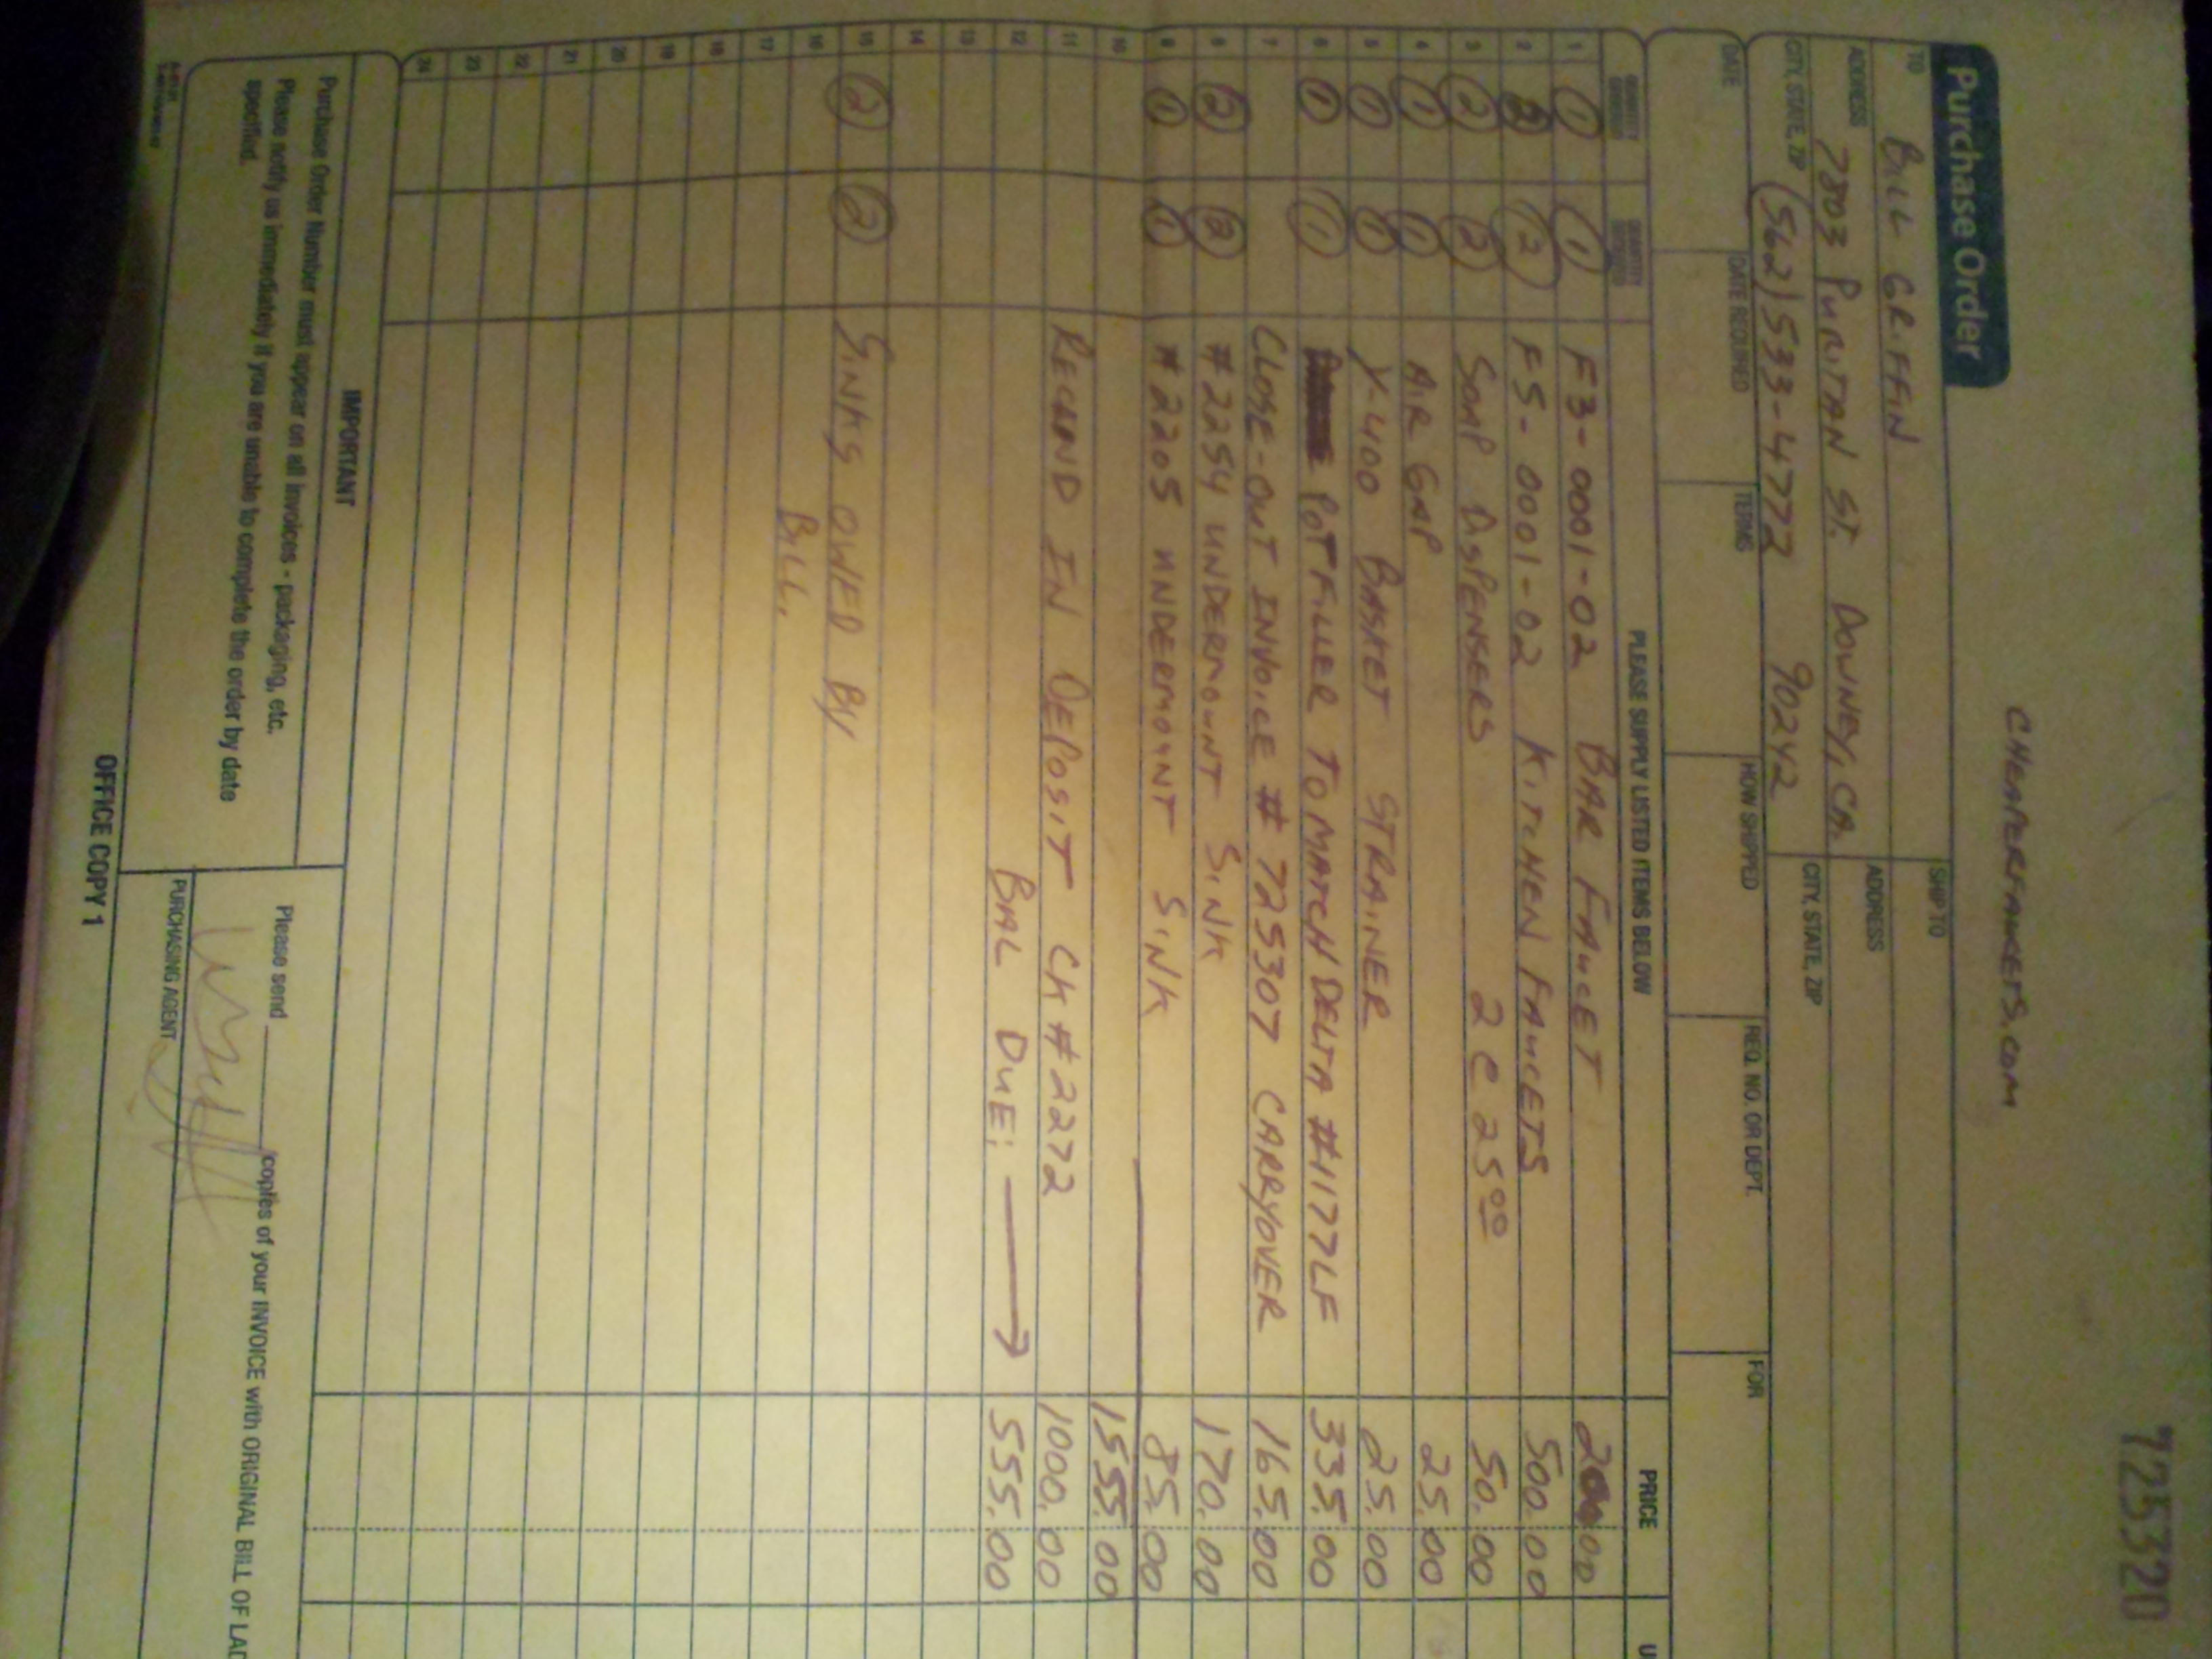 725320
CHEAPERFAUCETS.COM
Purchase Order
TO BILL GRIFFIN SHIP TO
ADDRESS 7803 PURITAN ST. DOWNEY, CA. ADDRESS
CITY, STATE, ZIP (562) 533-4772 90242 CITY, STATE, ZIP
DATE DATE REQUIRED TERMS HOW SHIPPED REQ. NO. OR DEPT. FOR
QUANTITY QUANTITY PLEASE SUPPLY LISTED ITEMS BELOW PRICE U
1 1 1 F3-0001-02 BAR FAUCET 200.00
2 2 2 F5-0001-02 KITCHEN FAUCETS 500.00
3 2 2 SOAP DISPENSERS 2 @ 25 00 50.00
4 1 1 AIR GAP 25.00
5 1 1 Y-400 BASKET STRAINER 25.00
6 1 1 POT FILLER TO MATCH DELTA #1177LF 335.00
7 CLOSE-OUT INVOICE # 725307 CARRYOVER 165.00
8 2 2 #2254 UNDERMOUNT SINK 170.00
9 1 1 #2205 UNDERMOUNT SINK 85.00
10 1555.00
11 RECAND IN DEPOSIT CK #2272 1000.00
12 BAL DUE: → 555.00
13
14
15 2 2 SINKS OWED BY
16 BILL.
17
18
19
20
21
22
23
24
IMPORTANT
Purchase Order Number must appear on all invoices - packaging, etc.
Please notify us immediately if you are unable to complete the order by date
specified.
Please send ____ copies of your INVOICE with ORIGINAL BILL OF LAD
PURCHASING AGENT
OFFICE COPY 1